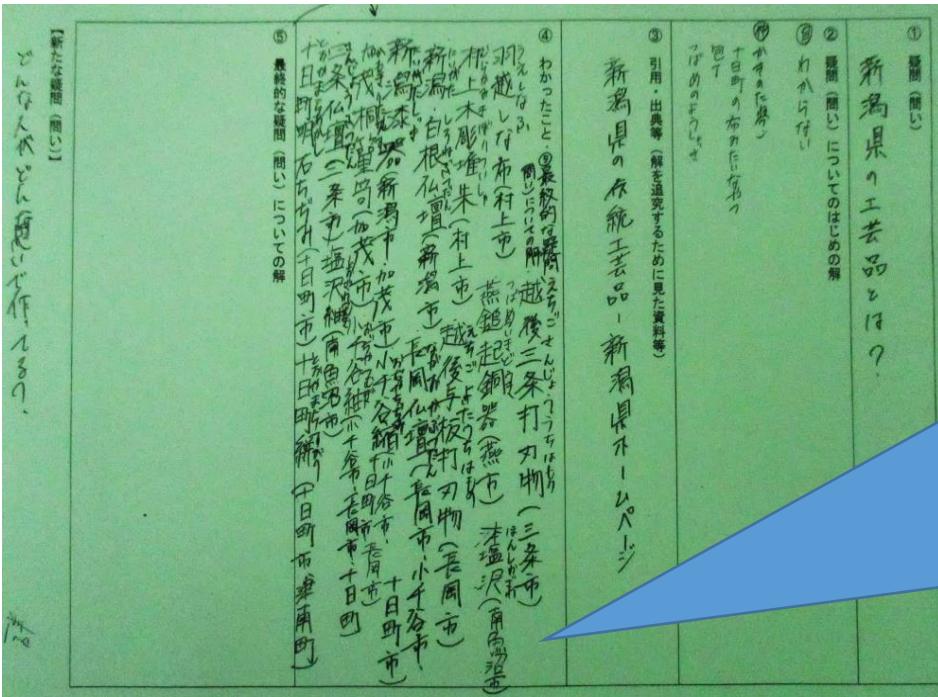 ① 疑問(問い)
新潟県の工芸品とは?
② 疑問(問い)についてのはじめの解
わからない
十日町の布みたいなもの
包丁
つばめのようしょっき
③ 引用・出典等(解を追究するために見た資料等)
新潟県の伝統工芸品-新潟県ホームページ
④ わかったこと・⑨最終的な疑問(問い)についての解
越後三条打刃物(三条市)
燕鎚起銅器(燕市) 本塩沢(南魚沼市)
羽越しな布(村上市)
村上木彫堆朱(村上市) 越後与板打刃物(長岡市)
新潟・白根仏壇(新潟市) 長岡仏壇(長岡市、小千谷市、
新潟漆器(新潟市・加茂市) 小千谷縮(小千谷市、十日町市、長岡市)
加茂桐箪笥(加茂市) 小千谷紬(小千谷市、長岡市、十日町
三条仏壇(三条市) 塩沢紬(南魚沼市)
十日町明石ちぢみ(十日町市) 十日町絣(十日町市、津南町)
⑤ 最終的な疑問(問い)についての解
【新たな疑問(問い)】
どんな人がどんな思いで作ってる?